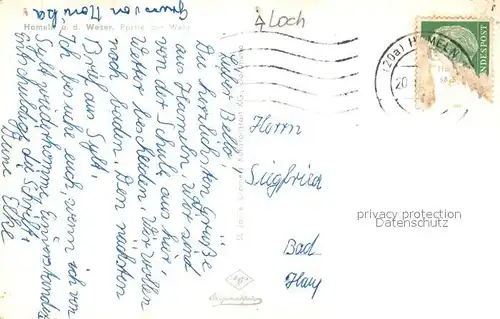 Gruss von Monika
Hameln a. d. Weser. Partie am Wehr
Loch
Lieber Bello!
Die herzlichsten Grüße
aus Hameln. Wir sind
von der Schule aus hier.
Wetter bescheiden. Wir wollen
noch baden. Den nächsten
Brief aus Sylt.
Ich besuche euch, wenn ich von
Sylt wiederkomme. Einverstanden?
Entschuldige die Schrift.
Deine Elke
Herrn
Siegfried
Bad
Harz
(20a) HAMELN
20
DEUTSCHE BUNDESPOST
privacy protection
watermark